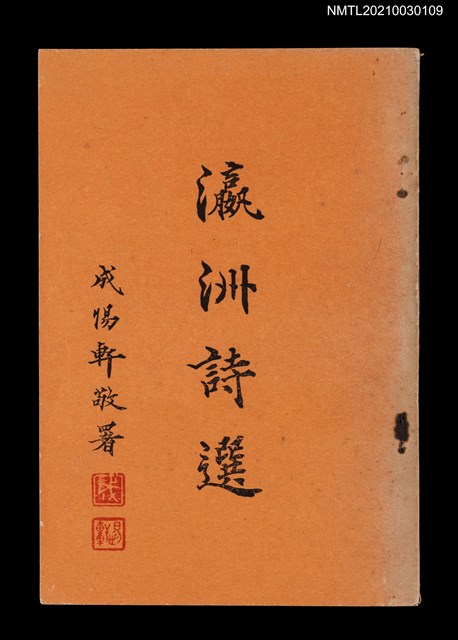 NMTL20210030109
瀛洲詩選
成惕軒敬署